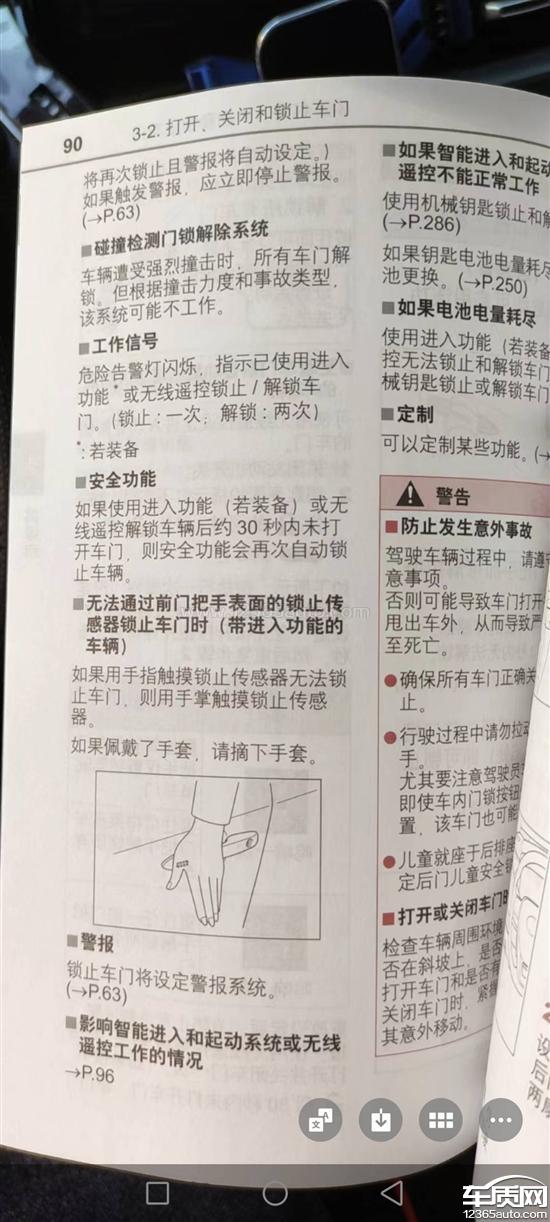 90
3-2. 打开、关闭和锁止车门
将再次锁止且警报将自动设定。)
如果触发警报，应立即停止警报。
(→P.63)
■碰撞检测门锁解除系统
车辆遭受强烈撞击时，所有车门解
锁。但根据撞击力度和事故类型，
该系统可能不工作。
■工作信号
危险告警灯闪烁，指示已使用进入
功能*或无线遥控锁止/解锁车
门。(锁止:一次；解锁:两次)
*:若装备
■安全功能
如果使用进入功能（若装备）或无
线遥控解锁车辆后约 30 秒内未打
开车门，则安全功能会再次自动锁
止车辆。
■无法通过前门把手表面的锁止传
感器锁止车门时（带进入功能的
车辆）
如果用手指触摸锁止传感器无法锁
止车门，则用手掌触摸锁止传感
器。
如果佩戴了手套，请摘下手套。
■警报
锁止车门将设定警报系统。
(→P.63)
■影响智能进入和起动系统或无线
遥控工作的情况
→P.96
■如果智能进入和起动
遥控不能正常工作
使用机械钥匙锁止和解
(→P.286)
如果钥匙电池电量耗尽
池更换。(→P.250)
■如果电池电量耗尽
使用进入功能（若装备
控无法锁止和解锁车门
械钥匙锁止或解锁车门
■定制
可以定制某些功能。(→
警告
■防止发生意外事故
驾驶车辆过程中，请遵守
意事项。
否则可能导致车门打开
甩出车外，从而导致严
至死亡。
●确保所有车门正确关
止。
●行驶过程中请勿拉动
手。
尤其要注意驾驶员
即使车内门锁按钮
置，该车门也可能
●儿童就座于后排座
定后门儿童安全锁
■打开或关闭车门时
检查车辆周围环境
否在斜坡上，是否
打开车门和是否有
关闭车门时，紧握
其意外移动。
设
后
两厚
车质网
12365auto.com